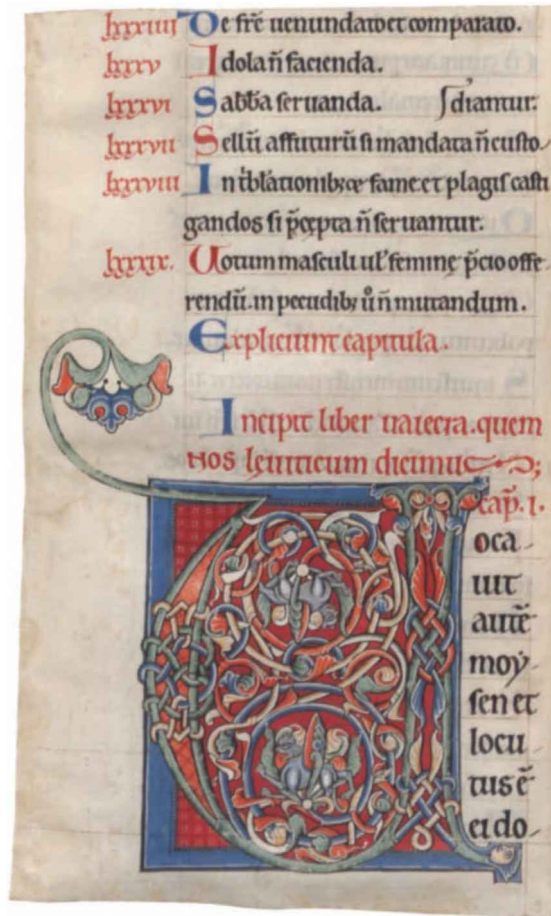 lxxxiiii De fr̄e uenundato et comparato.
lxxxv Idola n̄ facienda.
lxxxvi Sabb̄a seruanda. diantur.
lxxxvii Bellū affuturū si mandata n̄ custo
lxxxviii In t̄blationibꝫ ꝗ̄ fame et plagis casti
gandos si p̄cepta n̄ seruantur.
lxxxix. Uotum masculi ul̄ feminę p̄cio offe
rendū. in pecudibꝫ u̾ n̄ mutandum.
Expliciunt capitula.
Incipit liber uaiecra. quem
nos leuiticum dicimus;
cap̄. i.
Uoca
uit
autē
moy
sen et
locu
tus ē
ei do